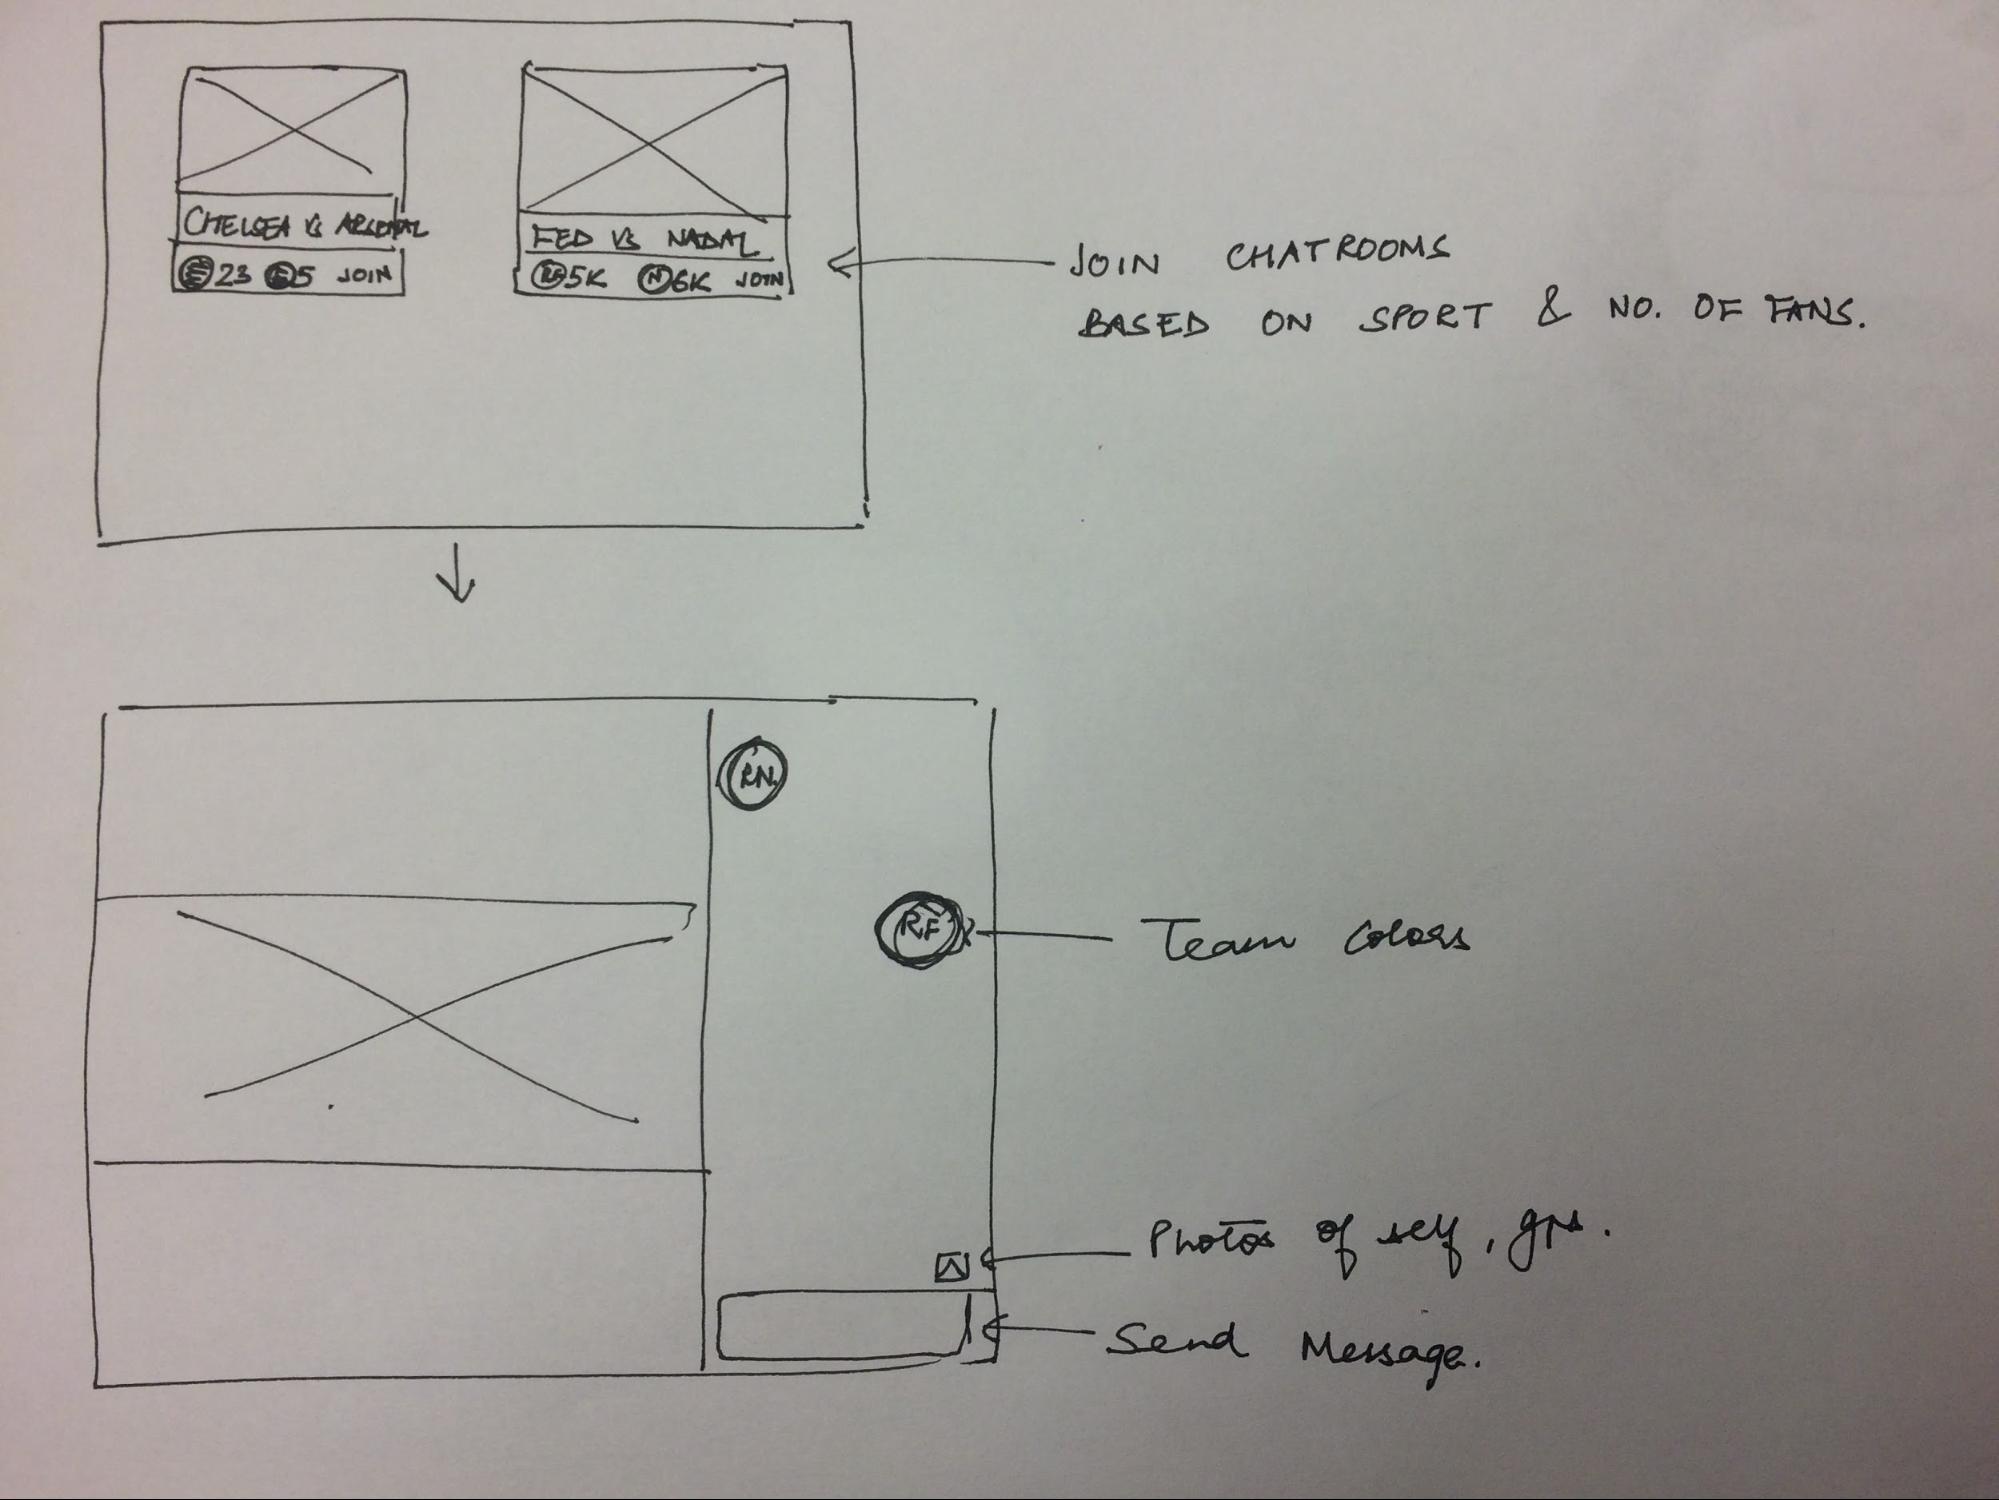 CHELSEA VS ARSENAL
23 5 JOIN
FED VS NADAL
RF 5K N 6K JOIN
JOIN CHATROOMS
BASED ON SPORT & NO. OF FANS.
RN
RF
Team colors
Photos of self,
Send Message.